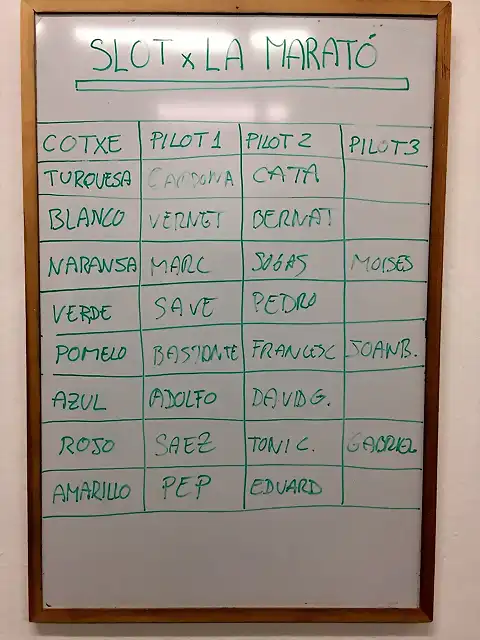 SLOT x LA MARATÓ
COTXE PILOT 1 PILOT 2 PILOT 3
TURQUESA CARDONA CATA
BLANCO VERNET BERNAT
NARANJA MARC SOGAS MOISES
VERDE SAVE PEDRO
POMELO BASTONTE FRANCESC JOANB.
AZUL ADOLFO DAVID G.
ROJO SAEZ TONI C. GABRIEL
AMARILLO PEP EDUARD